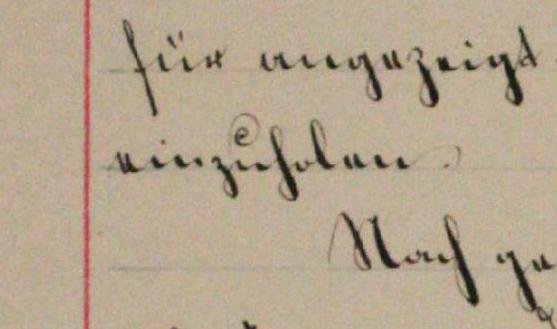 für angezeigt
einzuholen.
Nach ge